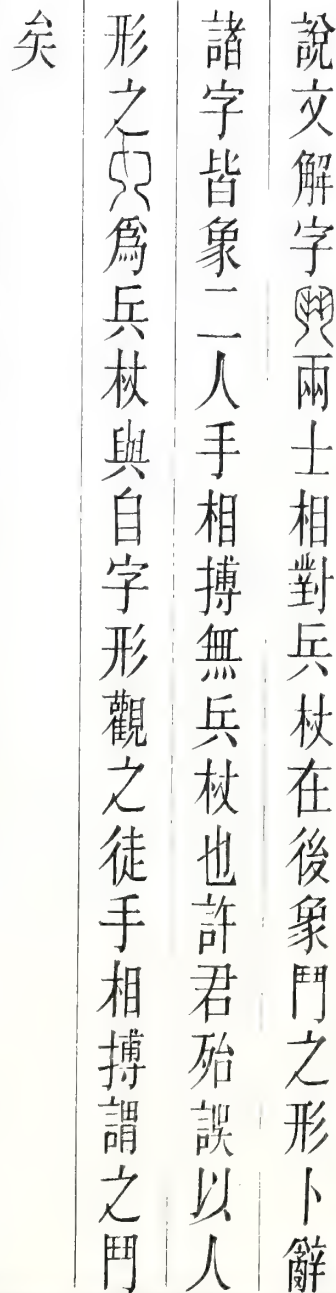 說文解字鬥兩士相對兵杖在後象鬥之形卜辭
諸字皆象二人手相搏無兵杖也許君殆誤以人
形之為兵杖與自字形觀之徒手相搏謂之鬥
矣